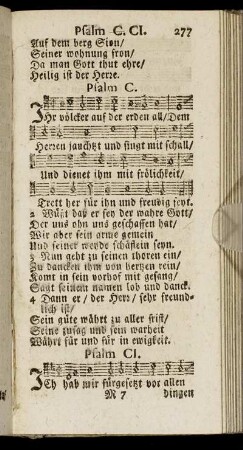 Psalm C. CI. 277
Auf dem berg Sion/
Seiner wohnung fron/
Da man Gott thut ehre/
Heilig ist der Herre.
Psalm C.
IHr völcker auf der erden all/ Dem
Herren jauchtzt und singt mit schall/
Und dienet ihm mit frölichkeit/
Trett her für ihn und freudig seyt.
2 Wüßt daß er sey der wahre Gott/
Der uns ohn uns geschaffen hat/
Wir aber sein arme gemein
Und seiner weyde schäflein seyn.
3 Nun geht zu seinen thoren ein/
Zu dancken ihm von hertzen rein/
Komt in sein vorhof mit gesang/
Sagt seinem namen lob und danck.
4 Dann er/ der Herr/ sehr freund-
lich ist/
Sein güte währt zu aller frist/
Seine zusag und sein warheit
Währt für und für in ewigkeit.
Psalm CI.
ICh hab mir fürgesetzt vor allen
M 7 dingen